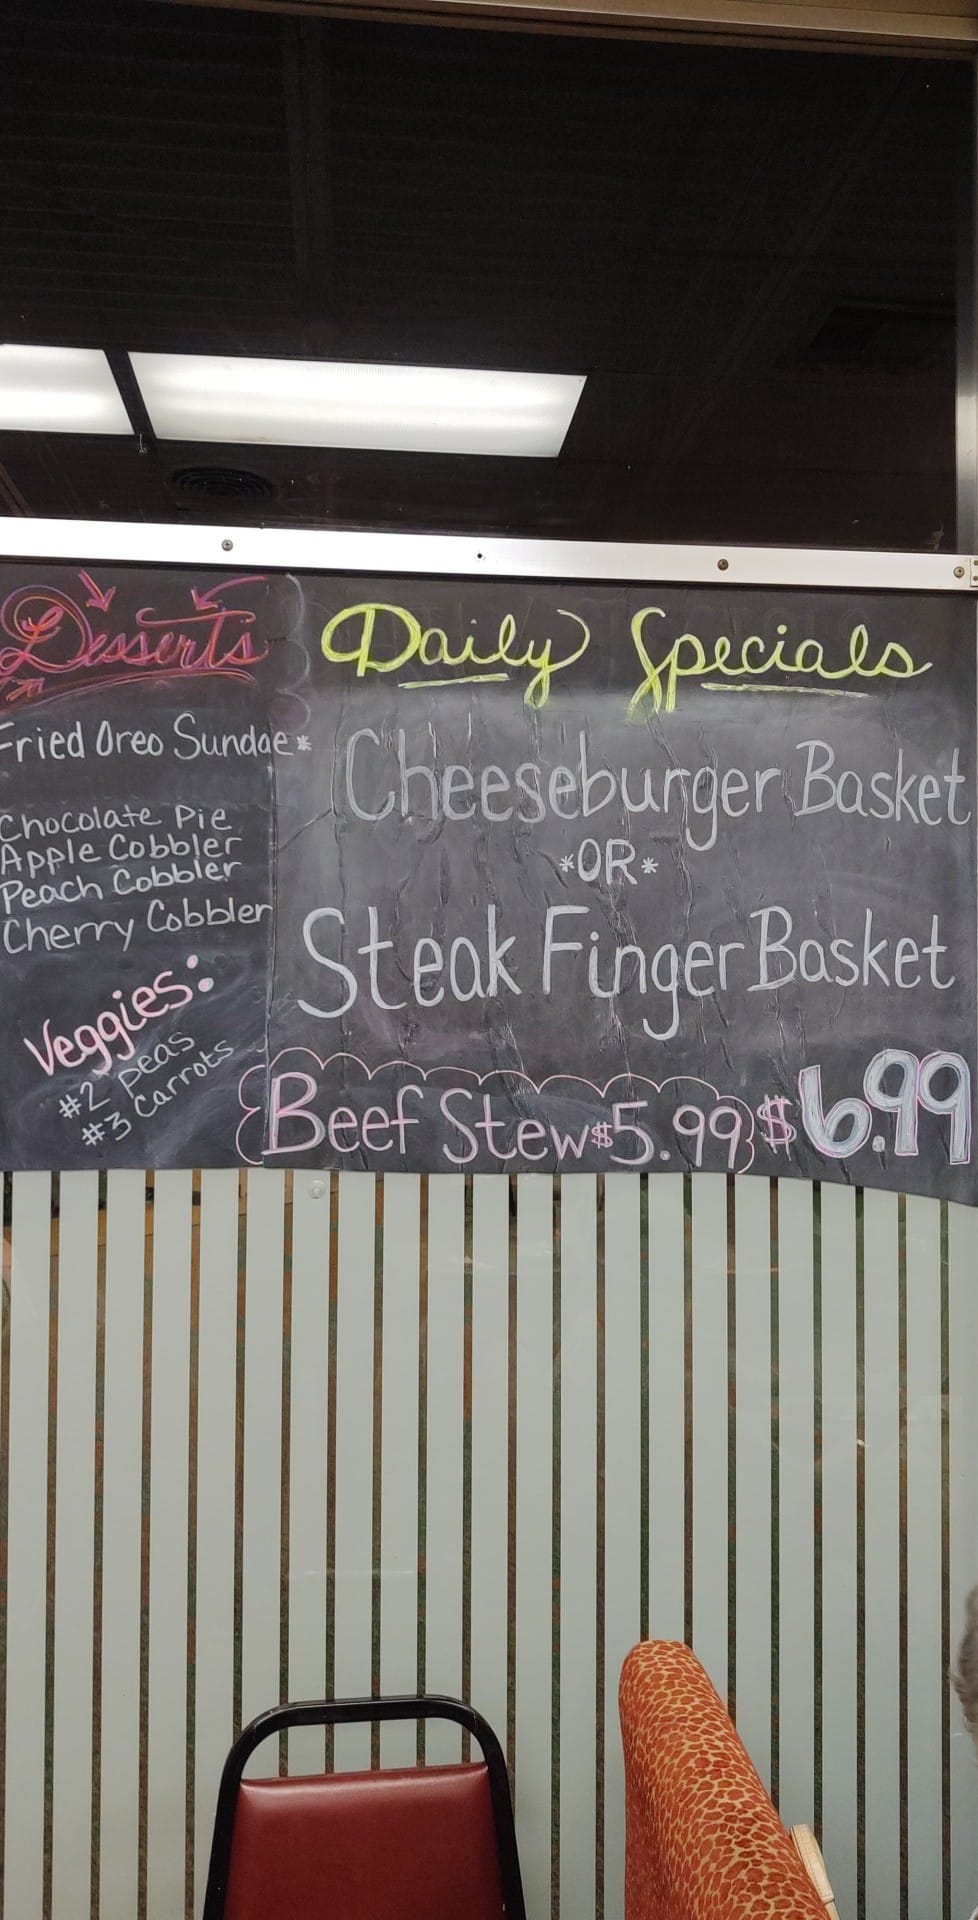 Desserts
Fried Oreo Sundae*
Chocolate Pie
Apple Cobbler
Peach Cobbler
Cherry Cobbler
Veggies:
#2 peas
#3 Carrots
Daily Specials
Cheeseburger Basket
*OR*
Steak Finger Basket
$6.99
Beef Stew $5.99